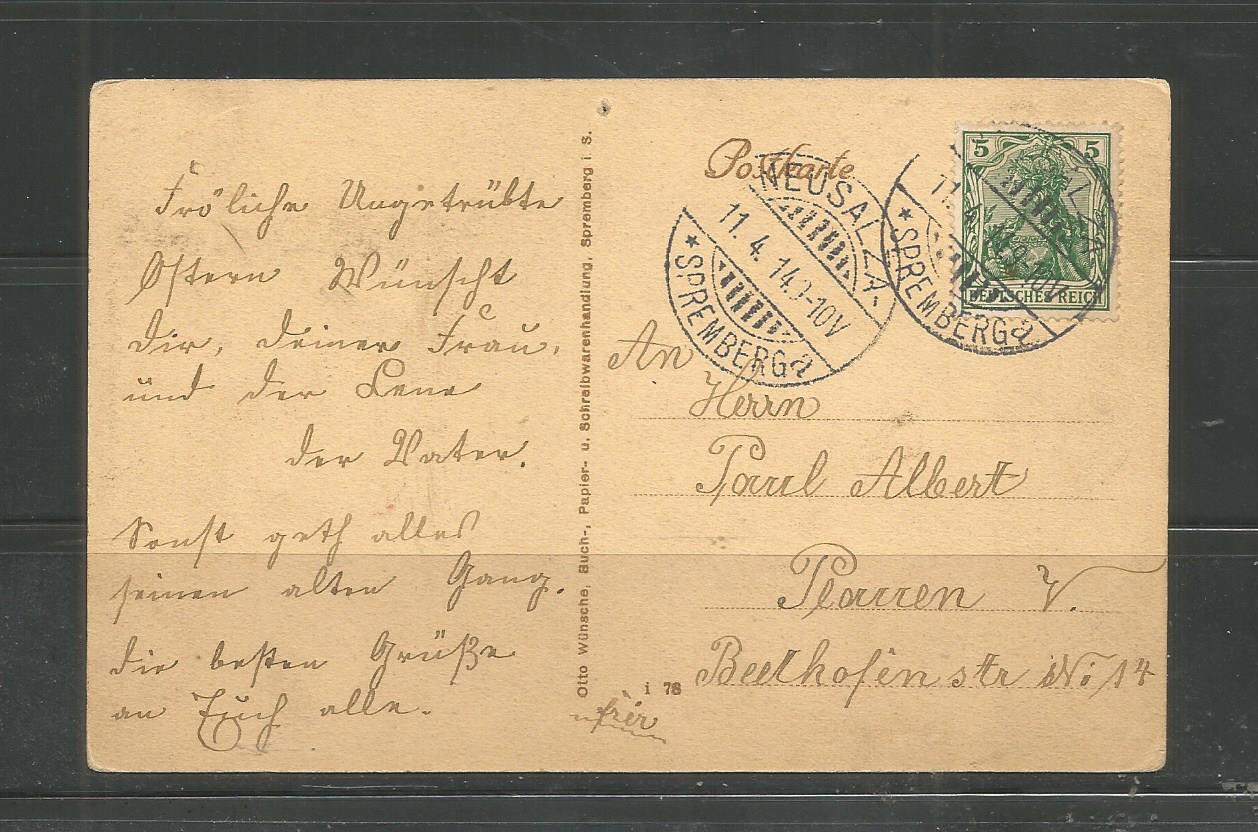 Fröliche Ungetrübte
Ostern Wünscht
dir, deiner Frau,
und der Lene
der Vater.
Sonst geth alles
seinen alten Gang.
die besten Grüße
an Euch alle.
Otto Wünsche, Buch-, Papier- u. Schreibwarenhandlung, Spremberg i. S.
i 78
Postkarte
NEUSALZA-
11. 4. 14. 9-10V
* SPREMBERG a
5 5
DEUTSCHES REICH
NEUSALZA-
11. 4. 14. 9-10V
* SPREMBERG a
An
Herrn
Paul Albert
Plauen V.
Beethofenstr No 14